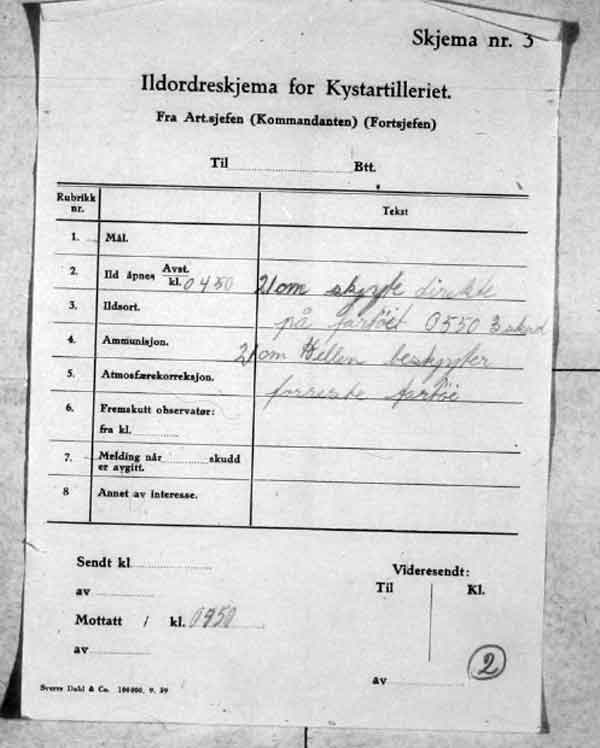 Skjema nr. 3
Ildordreskjema for Kystartilleriet.
Fra Art.sjefen (Kommandanten) (Fortsjefen)
Til Btt.
Rubrikk nr. Tekst
1. Mål.
2. Ild åpnes Avst. kl. 0450 21 om skyte direkte
3. Ildsort. på fartøiet 0550 3 skud
4. Ammunisjon. 21 om Hellen beskyter
5. Atmosfærekorreksjon. forreste fartøi
6. Fremskutt observatør:
fra kl.
7. Melding når skudd
er avgitt.
8 Annet av interesse.
Sendt kl
av
Mottatt / kl. 0450
av
Videresendt:
Til Kl.
av
2
Sverre Dahl & Co. 100000. 9. 39